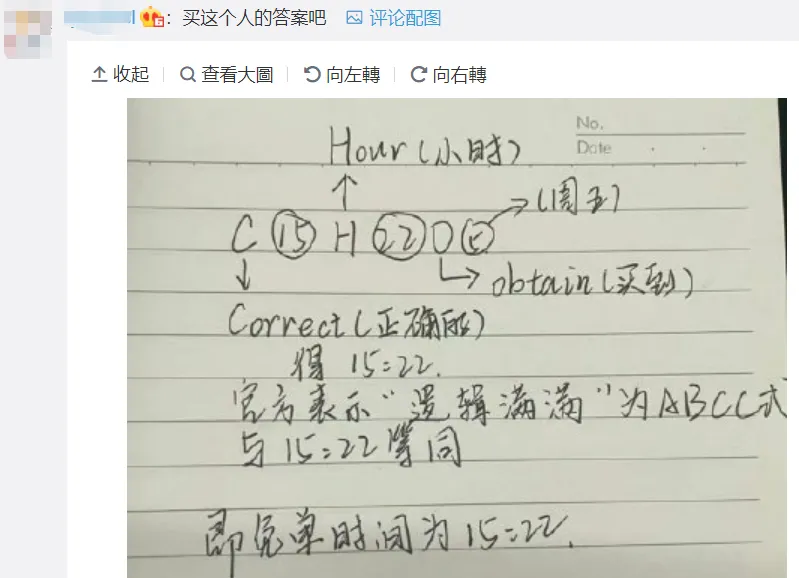 ：买这个人的答案吧 评论配图
收起 查看大圖 向左轉 向右轉
No.
Date
Hour(小时)
(周五)
C 15 H 22 O E
obtain(买到)
Correct(正确的)
得 15:22.
官方表示"逻辑满满"为ABCC式
与15:22等同
即免单时间为15:22.